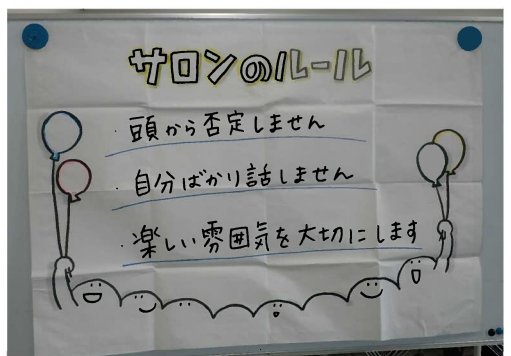 サロンのルール
・頭から否定しません
・自分ばかり話しません
・楽しい雰囲気を大切にします